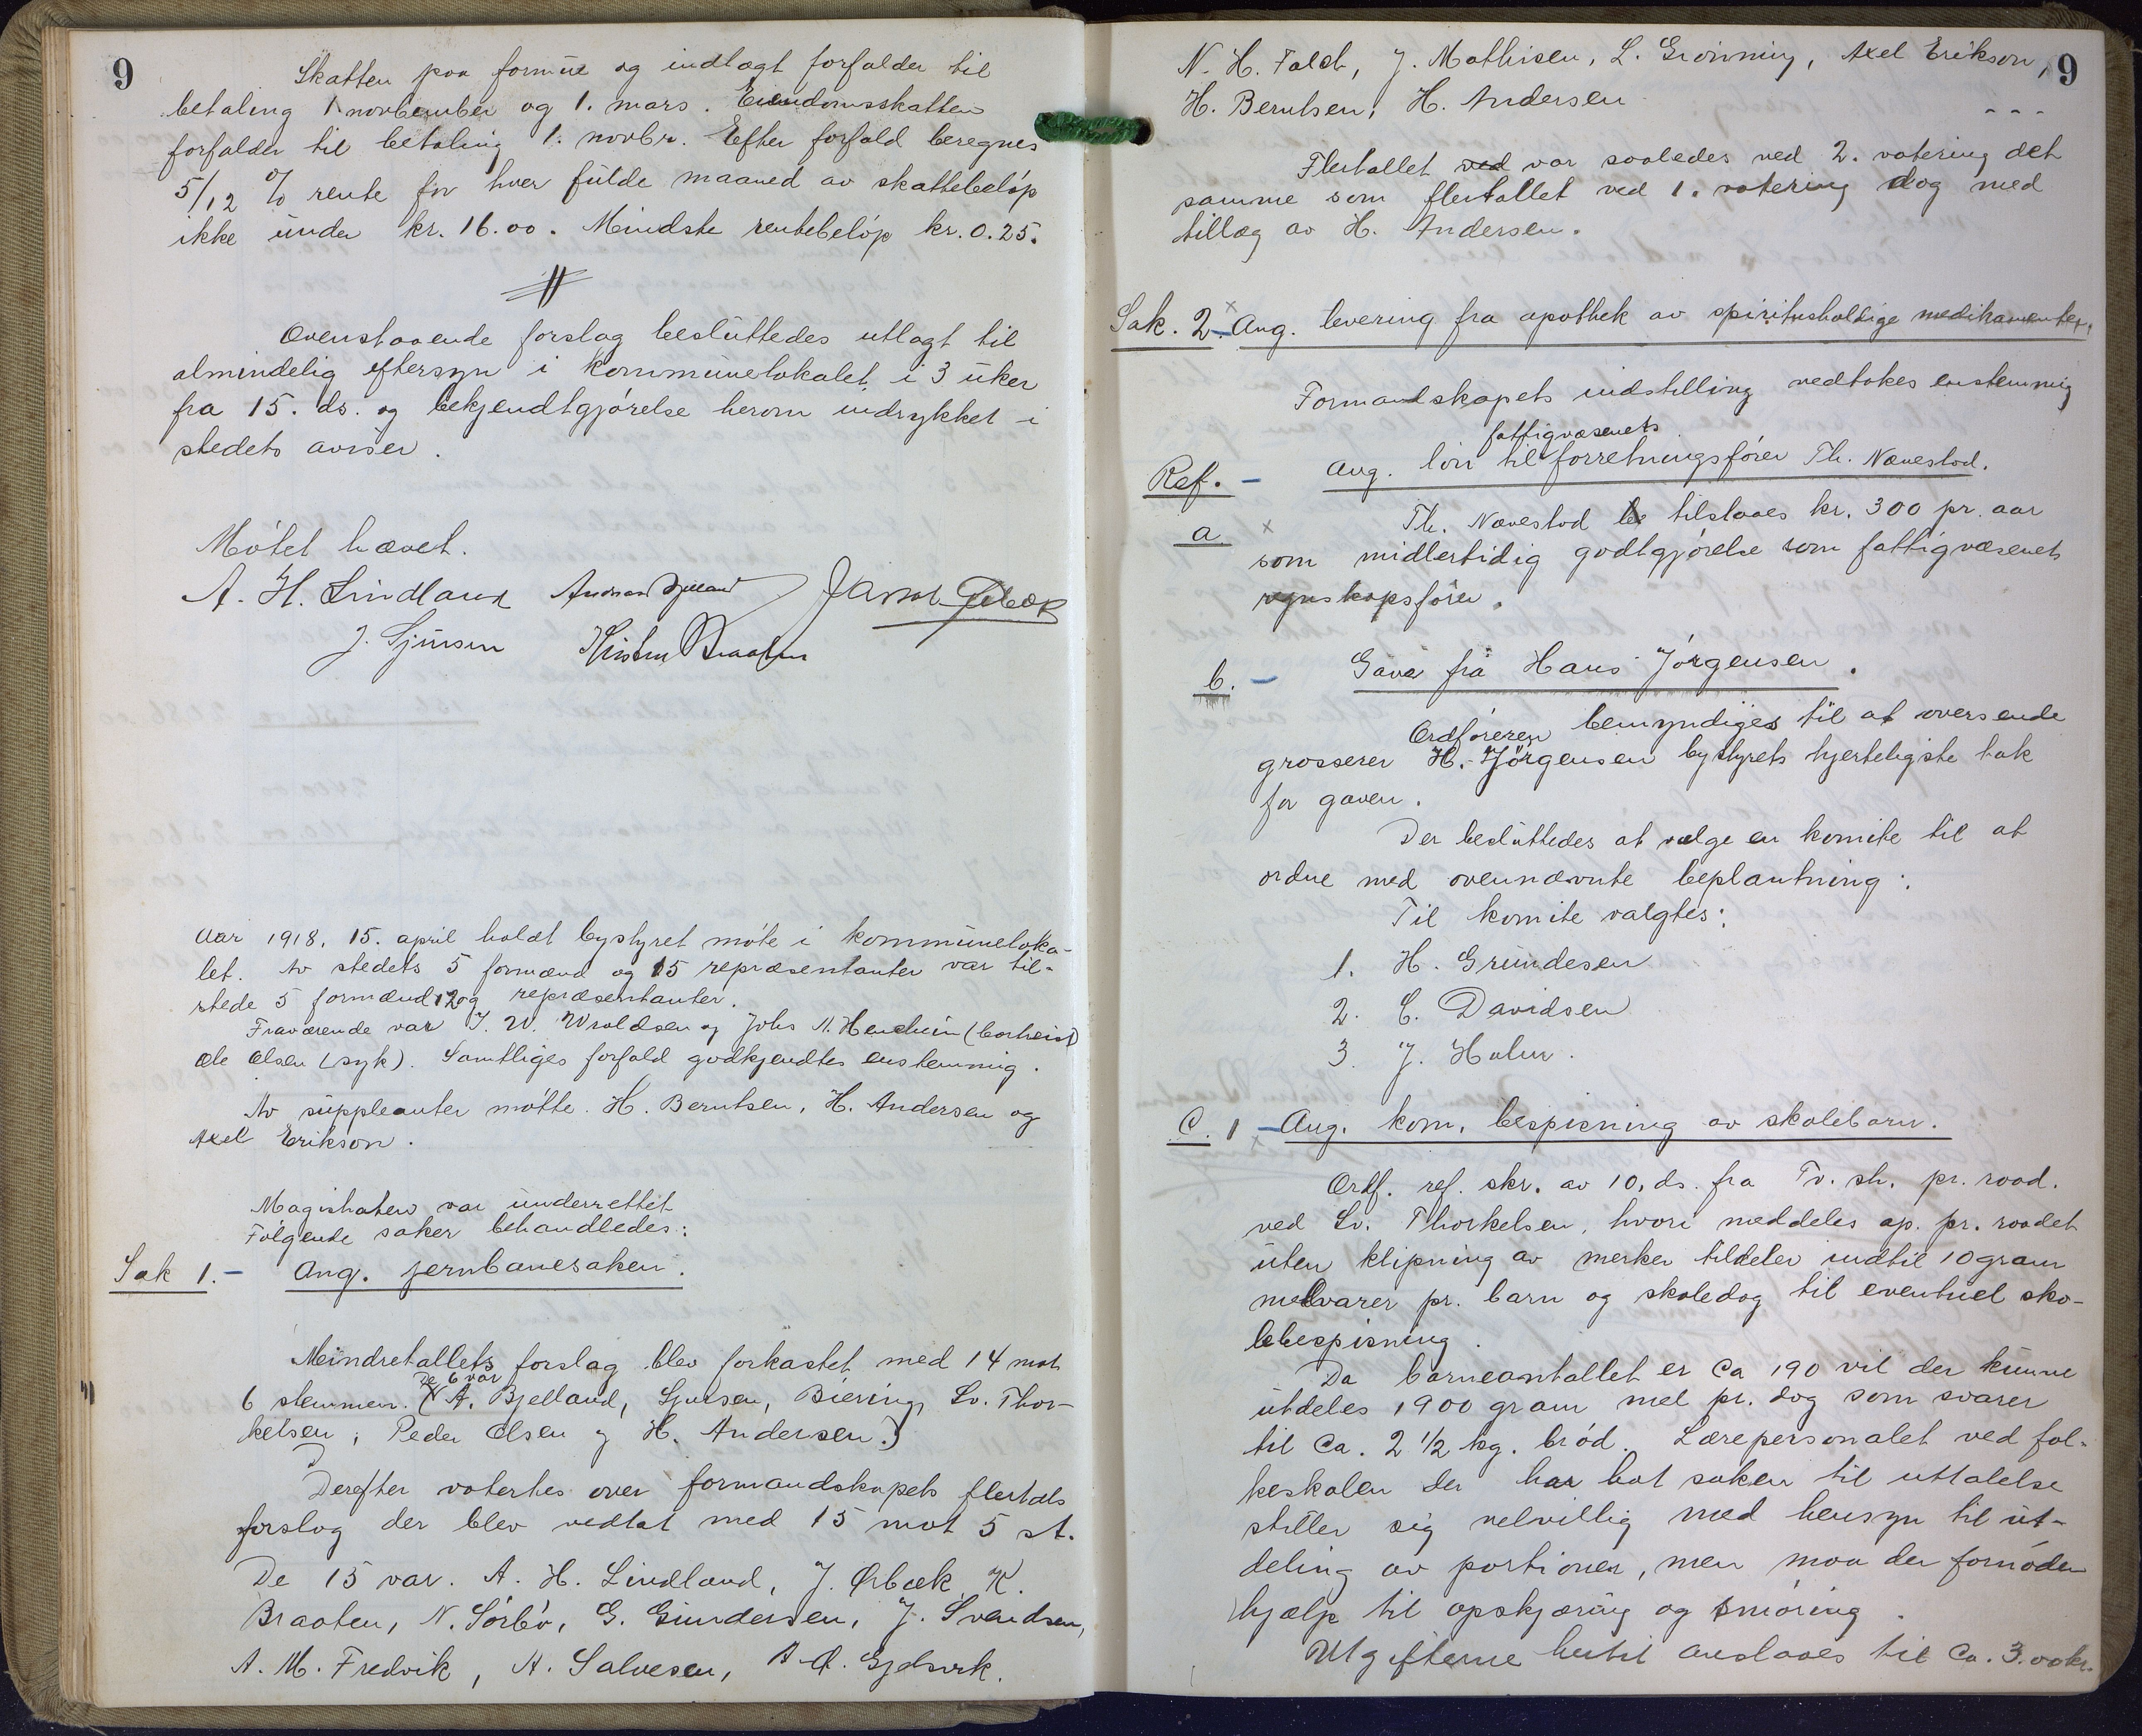 9
Skatten paa formue og indtægt forfalder til
betaling 1 novbember og 1. mars. Eiendomsskatten
forfalder til betaling 1. novbr. Efter forfald beregnes
5/12 % rente for hver fulde maaned av skattebeløp
ikke under kr. 16.00. Mindste rentebeløp kr. 0.25.
Ovenstaaende forslag besluttedes utlagt til
almindelig eftersyn i kommunelokalet i 3 uker
fra 15. ds. og bekjendtgjørelse herom indrykket i
stedets aviser.
Møtet hævet.
A. H. Lindland Andreas Bjelland
J. Sjursen Kristen Braaten
Aar 1918, 15. april holdt bystyret møte i kommuneloka-
let. Av stedets 5 formænd og 15 repræsentanter var til-
stede 5 formænd 12 og repræsentanter.
Fraværende var J. W. Wroldsen og Johs N. (bortreist)
Ole Olsen (syk). Samtliges forfald godkjendtes enstemmig.
Av suppleanter møtte H. Berntsen, H. Andersen og
Axel Erikson.
Magistraten var underrettet
Følgende saker behandledes:
Sak 1. - Ang. jernbanesaken.
Mindretallets forslag blev forkastet med 14 mot
6 stemmer. (De 6 var A. Bjelland, Sjursen, Biering, Sv. Thor-
kelsen, Peder Olsen og H. Andersen.)
Derefter votertes over formandskapets flertals
forslag der blev vedtat med 15 mot 5 st.
De 15 var. A. H. Lindland, J. Ørbæk, K.
Braaten, N. Sørbø, G. Gundersen, J. Svendsen,
A. M. Fredvik, A. Salvesen,
9
N. H. Falch, J. Mathisen, L. Grønning, Axel Erikson,
H. Berntsen, H. Andersen - - -
Flertallet ved var saaledes ved 2. votering det
samme som flertallet ved 1. votering dog med
tillæg av H. Andersen.
Sak. 2 - Ang. levering fra apothek av spiritusholdige medikamenter.
Formandskapets indstilling vedtokes enstemmig
fattigvæsenets
Ref. - Ang. løn til forretningsfører Th. Nævestad.
a. Th. Nævestad tilstaaes kr. 300 pr. aar
som midlertidig godtgjørelse som fattigvæsenets
regnskapsfører.
b. - Gave fra Hans Jørgensen.
Ordføreren bemyndiges til at oversende
grosserer H. Jørgensen bystyrets hjerteligste tak
for gaven.
Der besluttedes at vælge en komite til at
ordne med ovennævnte beplantning:
Til komite valgtes:
1. H. Grundesen
2. C. Davidsen
3. J. Holm.
C. 1 - Ang. kom. bespisning av skolebarn.
Ordf. ref. skr. av 10. ds. fra Tv. st. pr. raad.
ved Sv. Thorkelsen, hvori meddeles ap. pr. raadet
uten klipning av merker tildeler indtil 10 gram
melvarer pr. barn og skoledag til eventuel sko-
lebespisning.
Da barneantallet er Ca 190 vil der kunne
utdeles 1900 gram mel pr. dag som svarer
til Ca. 2 1/2 kg. brød. Lærepersonalet ved fol-
keskolen der har hat saken til uttalelse
stiller sig velvillig med hensyn til ut-
deling av portioner, men maa der fornøden
hjælp til opskjæring og smøring.
Utgifterne hertil anslaaes til Ca. 3.00 kr.